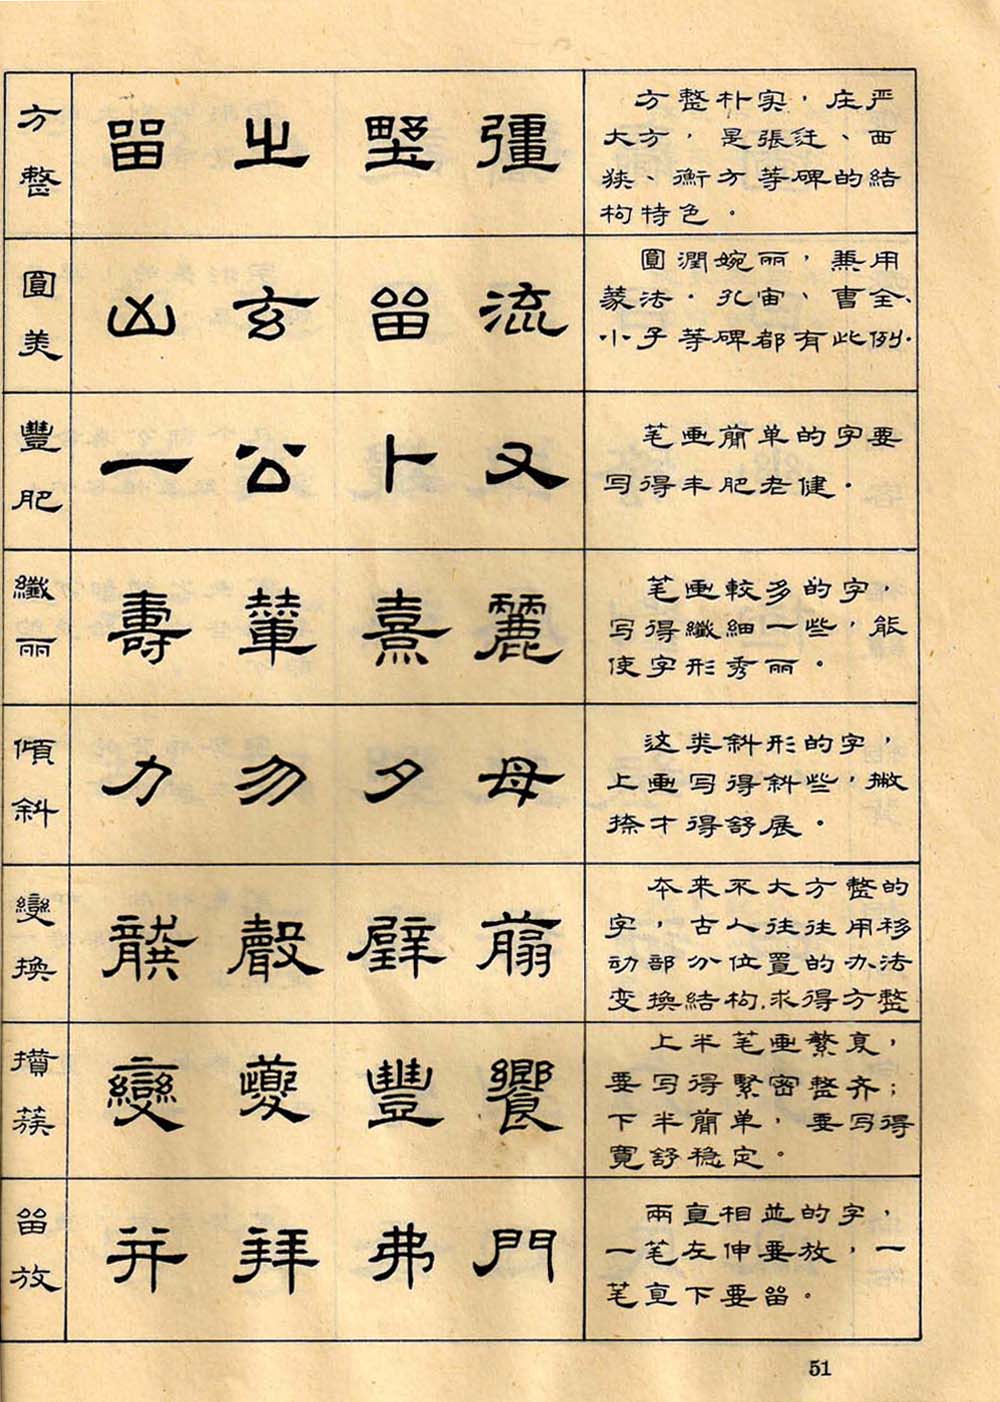 方整
留 㞢 野 彊
方整朴实，庄严
大方，是張迁、西
狭、衡方等碑的結
构特色。
圓美
凶 玄 留 流
圓潤婉丽，兼用
篆法．孔宙、曹全、
小子等碑都有此例．
豐肥
一 公 卜 又
笔画簡单的字要
写得丰肥老健．
纖丽
壽 輦 熹 麗
笔画較多的字，
写得纖細一些，能
使字形秀丽。
傾斜
力 勿 夕 母
这类斜形的字，
上画写得斜些，撇
捺才得舒展。
變換
龔 聲 壁 蕮
本来不大方整的
字，古人往往用移
动部分位置的办法
变換結构．求得方整
攅蔟
變 夔 豐 饗
上半笔画繁复，
要写得緊密整齐；
下半簡单，要写得
寬舒稳定。
留放
并 拜 弗 門
兩直相並的字，
一笔左伸要放，一
笔直下要留。
51